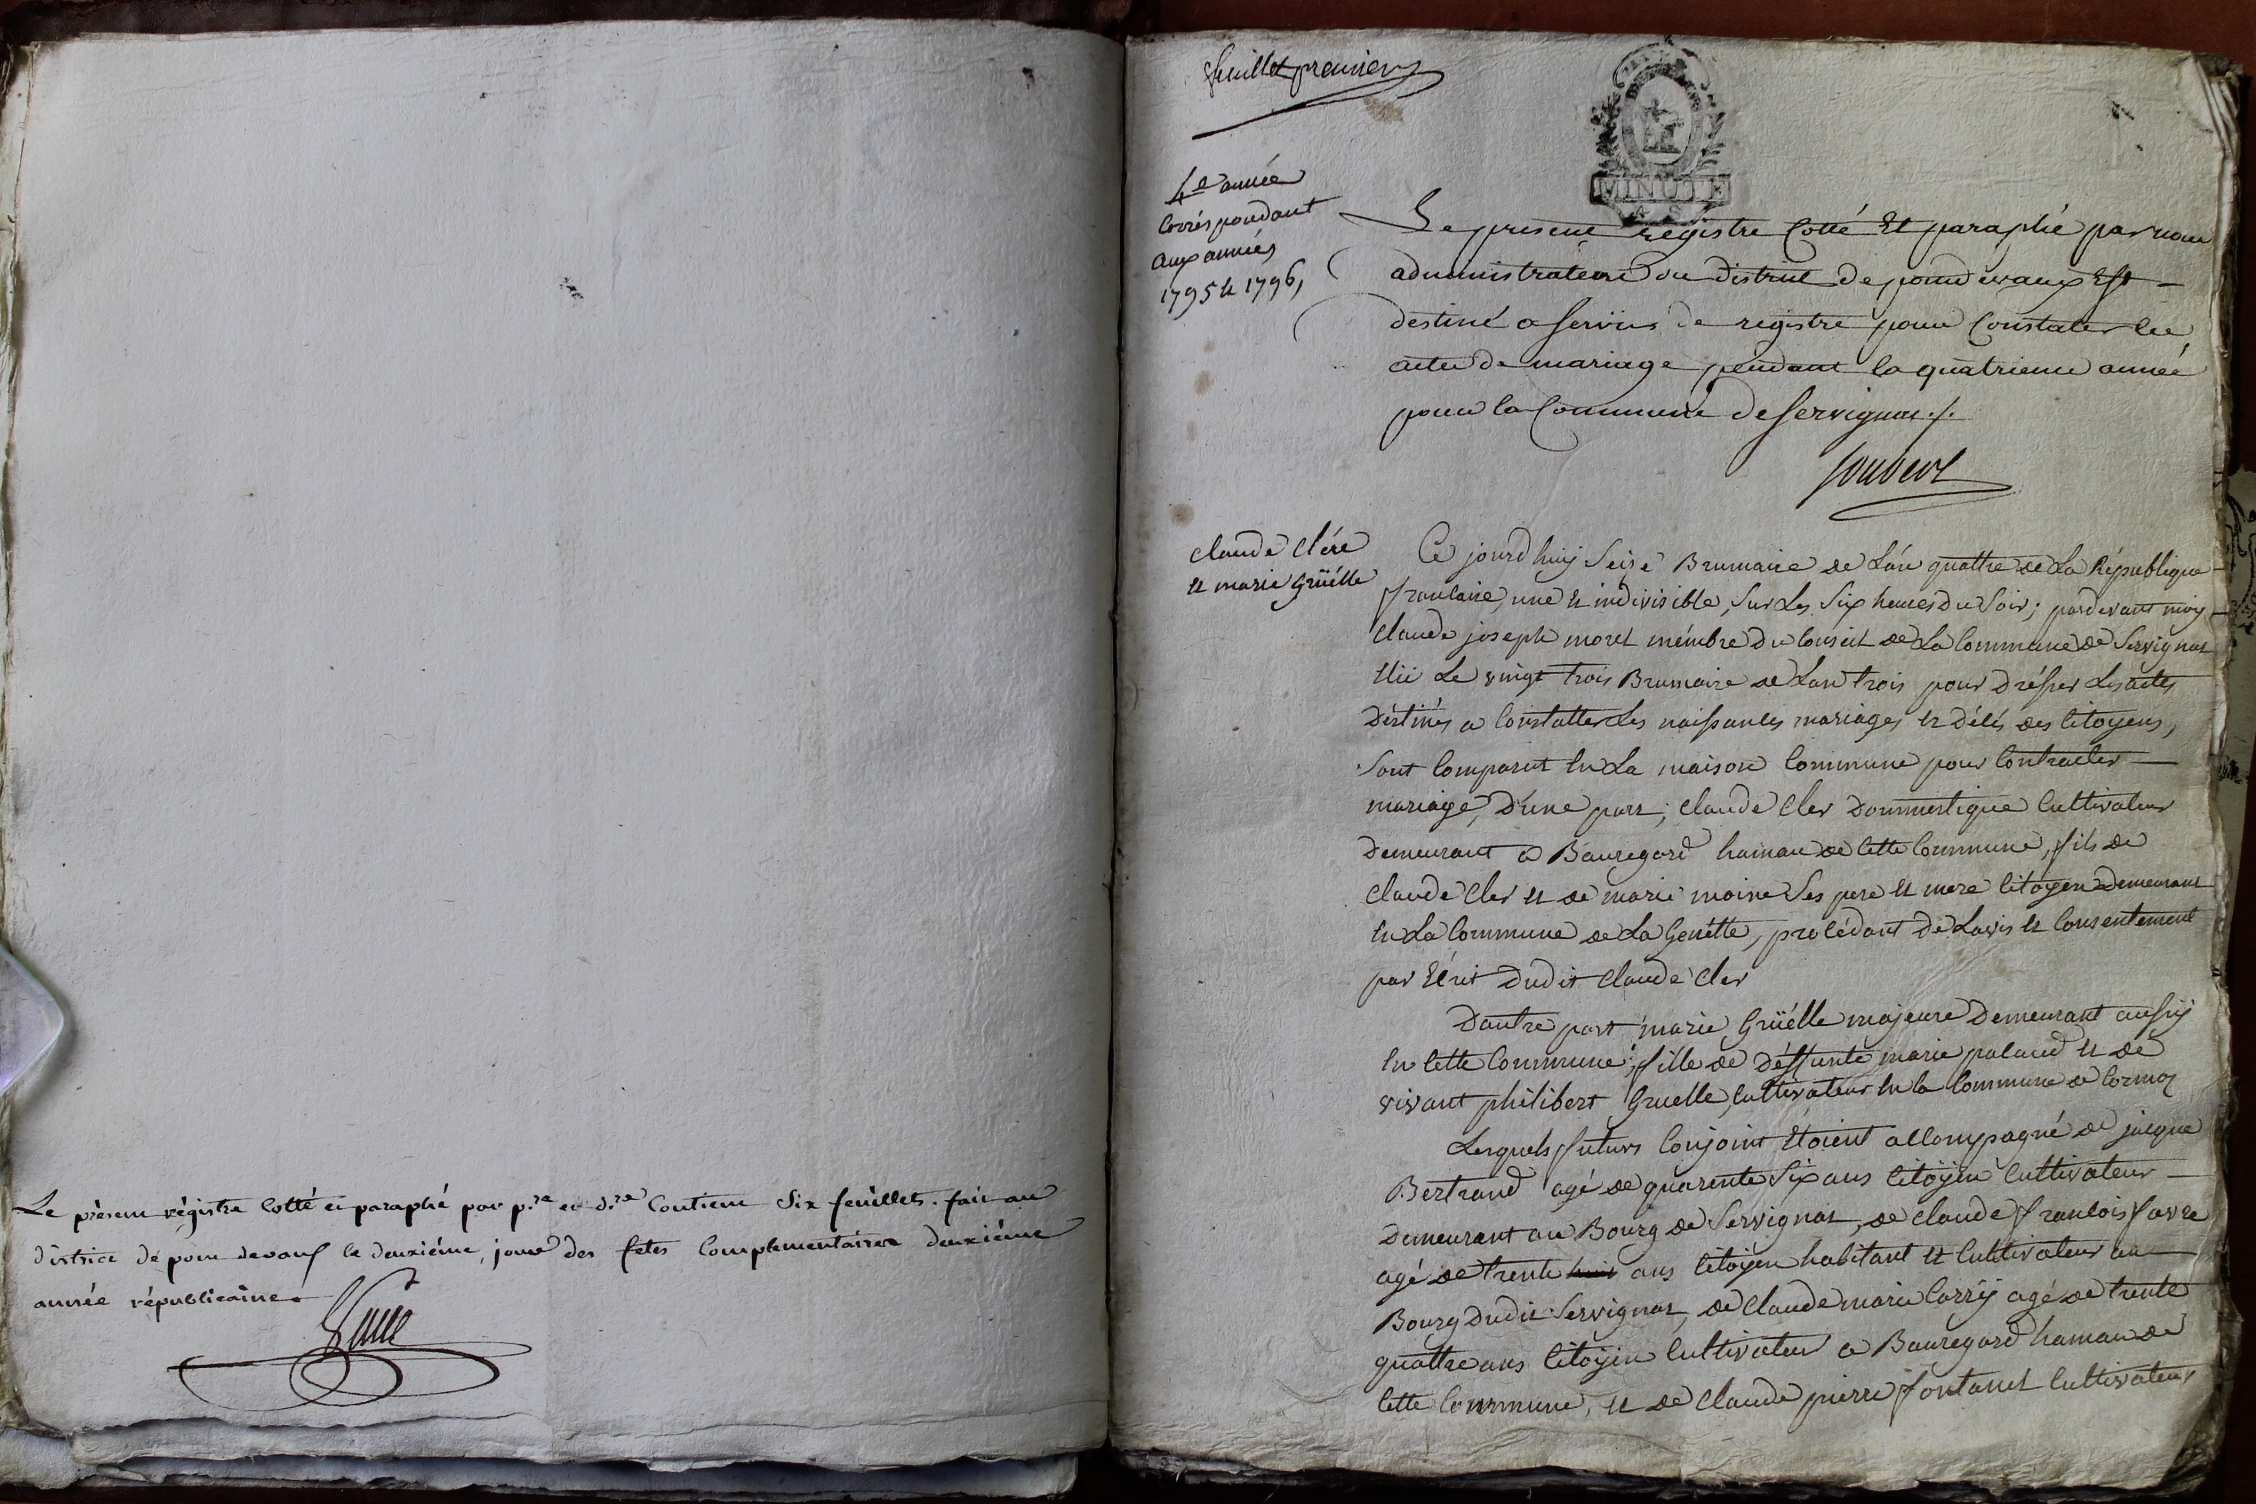 Le présent régistre Cotté et paraphé par p.re et d.re Contient Six feuillets. fait au
district de pont devaux le deuxiéme jour des fetes Complementaires deuxiéme
année républicaine.
feuillet premier
MINUTE
4e année
Corréspondant
aux années
1795 et 1796,
Le présent registre Cotté Et paraphé par nous
administrateur du district de pontdevaux Est
destiné a servir de registre pour Constater les
actes de mariage pendant la quatrieme année
pour la Commune de Servignat ./.
claude Clére
et marie Grüélle
Ce jourd'huy Seize Brumaire de L'an quattre de La République
francaise, une et indivisible, Sur Les Six heures du Soir; pardevant moy
Claude joseph morel mémbre du Conseil de La Commune de Servignat
Elü Le vingt trois Brumaire de Lan trois pour dresser Les actes
déstinés a Constatter Les naissances mariages et décés des Citoyens,
Sont Comparut En La maison Commune pour Contracter
mariage, D'une part; claude Cler Dommestique Cultivateur
Demeurant a Bauregard hamau de Cette Commune, fils de
Claude Cler et de marie moine Ses pere et mere Citoyen Demeurant
En La Commune de La Genétte, procédant de Lavis et Consentement
par Ecrit Dudit Claude Cler
Dautre part marie Grüélle majeure Demeurant aussÿ
En Cette Commune, fille de déffunte marie paland et de
vivant philibert Gruelle Cultivateur En la Commune de Cormoz
Lesquels futurs Conjoint Etoient accompagné de jacque
Bertrand agé de quarente Six ans Citoÿen Cultivateur
Demeurant au Bourg de Servignat, de Claude francois favre
agé de trente huit ans Citoÿen habitant et Cultivateur au
Bourg Dudit Servignat, de Claude marie Corrÿ agé de trente
quattre ans Citoÿen Cultivateur a Bauregard hamau de
Cette Commune, et de Claude pierre fontanet Cultivateur